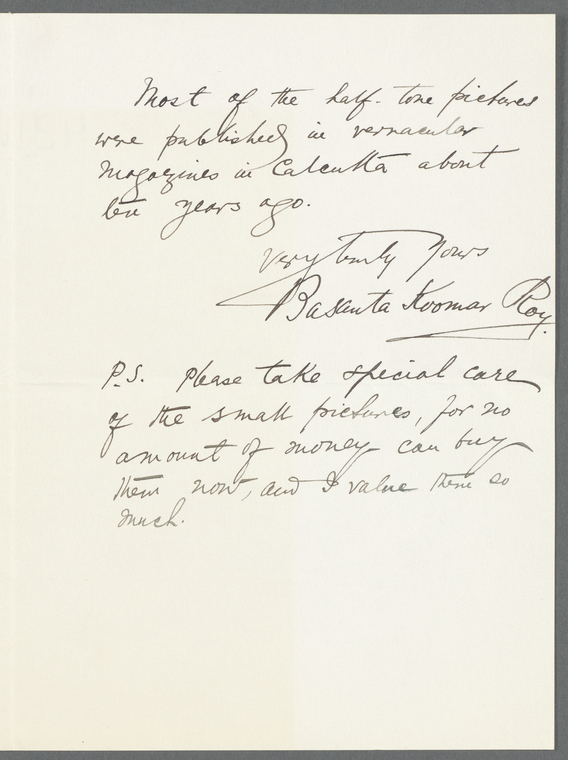 Most of the half-tone pictures
were published in vernacular
magazines in Calcutta about
ten years ago.
Very truly yours
Basanta Koomar Roy.
P.S. Please take special care
of the small pictures, for no
amount of money can buy
them now, and I value them so
much.